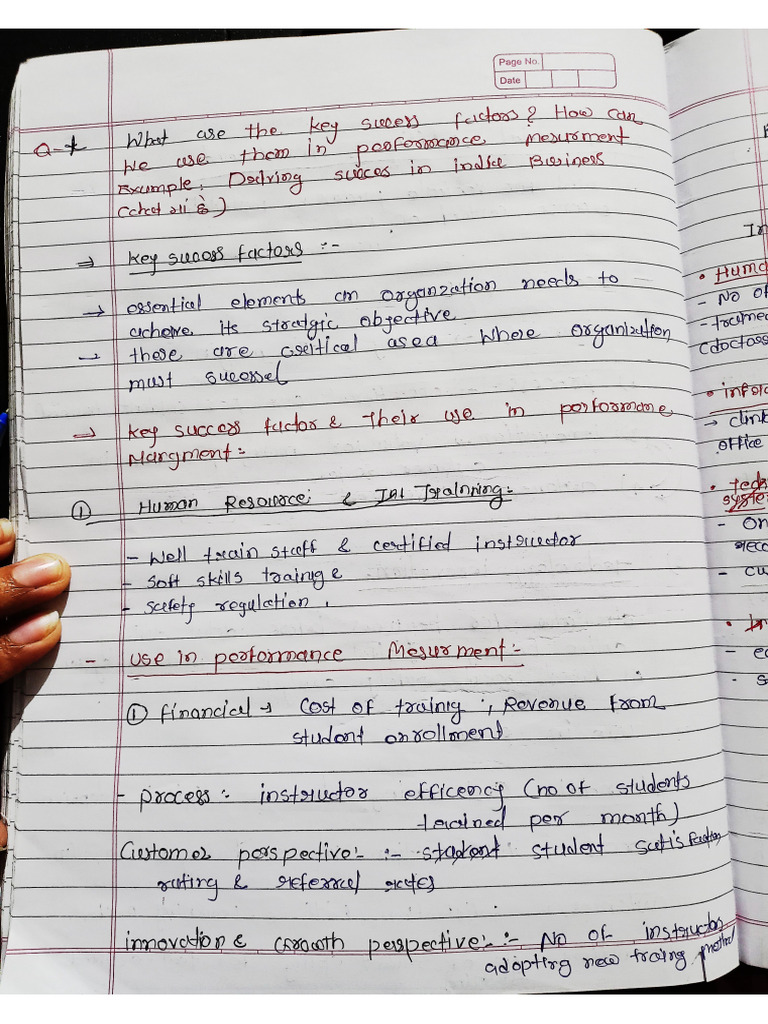 Page No.
Date
Q-1 What are the key sucess factors? How can
we use them in performance Mesurment
Example: Driving succes in indice Business
⇒ key sucess factors :-
→ essential elements an organization needs to
acheve its stratgic objective
these are critical area where organization
must sucessel
→ key success factor & Their use in performane
Mangment:-
① Human Resource & Training:-
- Well train staff & certified instructor
- Soft skills trainige
- safety regulation.
- use in performance Mesurment:-
① financial → Cost of trainig ; Revenue from
student enrollment
- process:- instructor efficency (no of students
trained per month)
Customer perspective:- :- student satisfaction
rating & referral rates
innovation & Growth perspective:- :- No of instructor
adopting new traing method
In
• Huma
- No of
- traine
(doctors
• infra
→ clini
office
• tech
system
- on
reco
- cu
- ea
- s